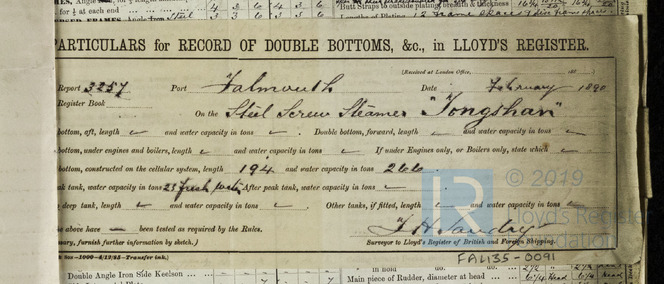 for ½ at each end
4 3 6 4 3 6
Butt Straps to outside plating, breadth & thickness
PARTICULARS for RECORD OF DOUBLE BOTTOMS, &c., in LLOYD'S REGISTER.
(Received at London Office, 188 )
Report 3257 Port Falmouth Date February 1890
Register Book
On the Steel Screw Steamer "Tongshan"
bottom, aft, length and water capacity in tons . Double bottom, forward, length and water capacity in tons
bottom, under engines and boilers, length and water capacity in tons If under Engines only, or Boilers only, state which
bottom, constructed on the cellular system, length 194 and water capacity in tons 266.
ak tank, water capacity in tons 23 fresh water After peak tank, water capacity in tons
deep tank, length and water capacity in tons Other tanks, if fitted, length and water capacity in tons
he above have been tested as required by the Rules.
ssary, furnish further information by sketch.)
Surveyor to Lloyd's Register of British and Foreign Shipping.
© 2019
Lloyd's Register
Foundation
FAL135-0091
Double Angle Iron Side Keelson
Main piece of Rudder, diameter at head